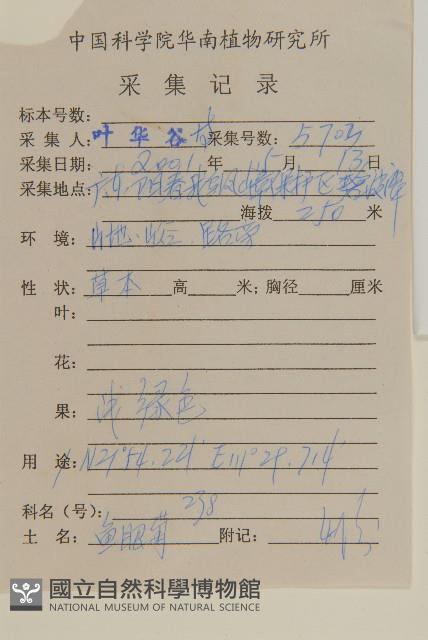 中国科学院华南植物研究所
采集记录
标本号数:
采集人:叶华谷 采集号数:5703
采集日期:2001年5月13日
采集地点:广东 保护区
海拨 250 米
环境:山地.
性状:草本 高 米;胸径 厘米
叶:
花:
果:浅绿色
用途: N21°54.221' E111°29.714'
科名(号): 238
土名:鱼眼菊 附记:
國立自然科學博物館
NATIONAL MUSEUM OF NATURAL SCIENCE